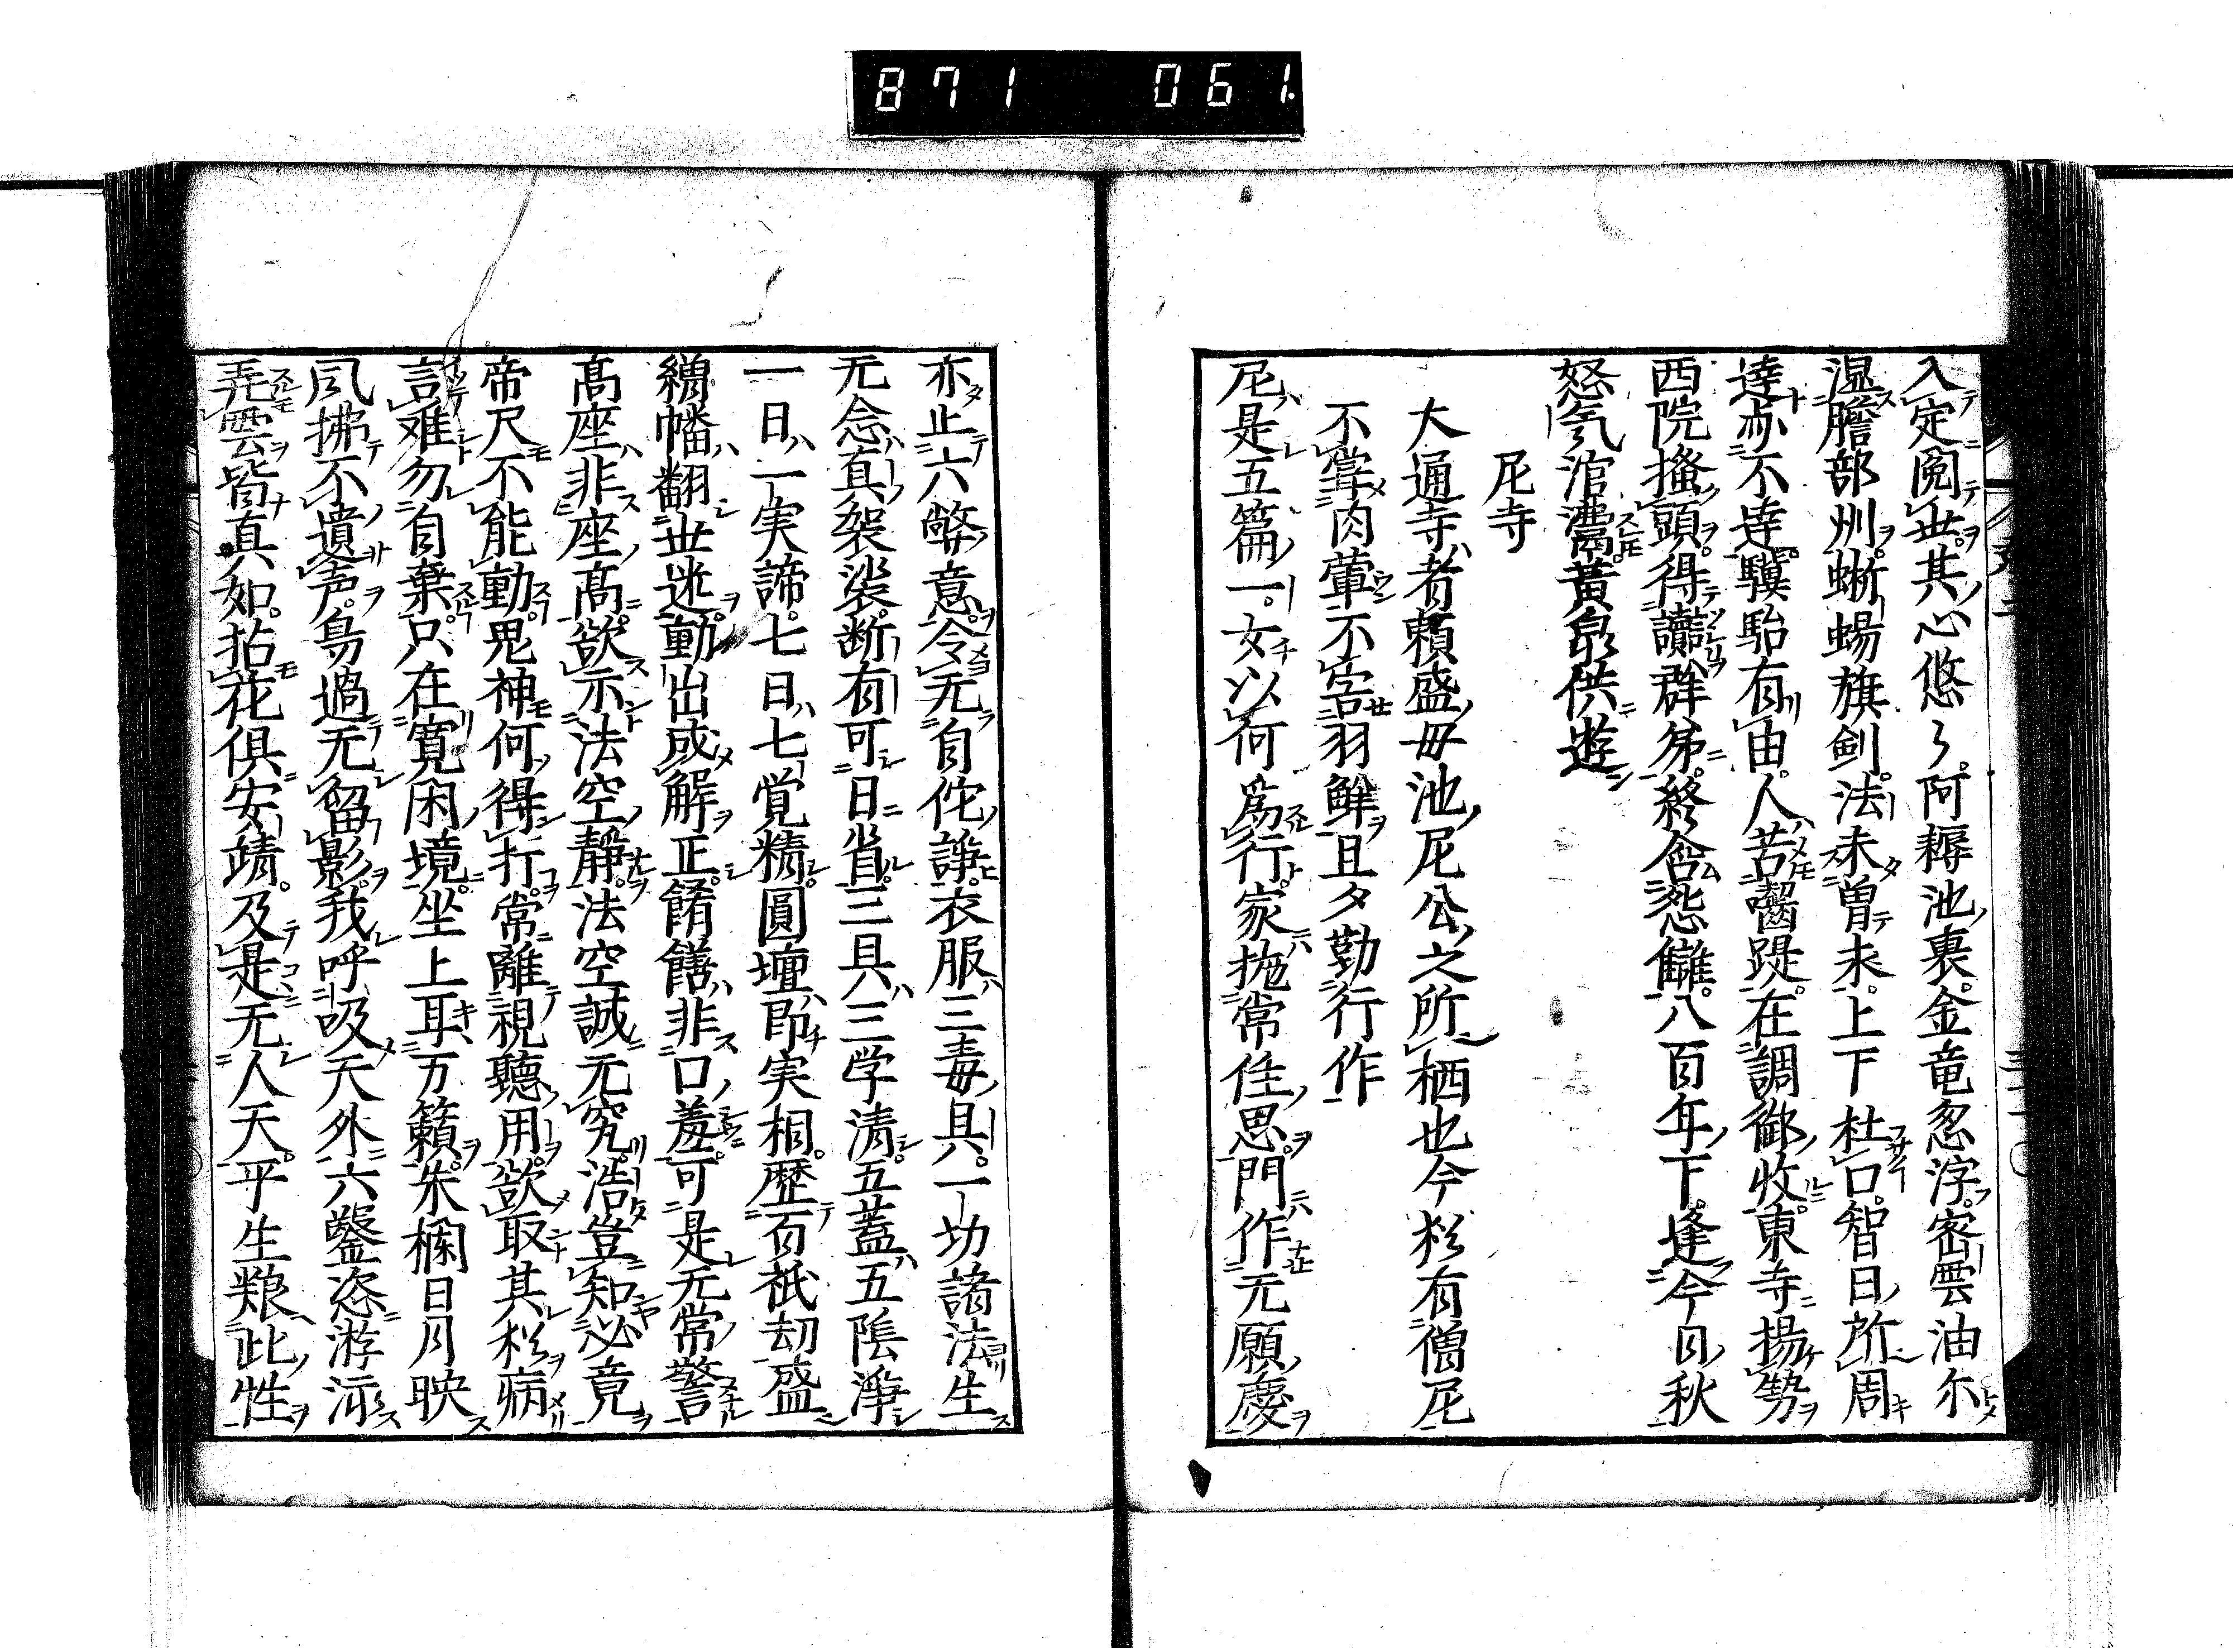 871 061
入定閲世其心悠々阿耨池裏金竜忽浮密雲油尓
湿膽部州蜥蜴旗剣法未曽来上下杜口智日所周
達亦不達驥駘有由人苦齧踶在調御收東寺揚勢
西院搔頭得讟群弟終含怨讎八百年下逢今日秋
怒気涫灊黃泉供遊
尼寺
大通寺者頼盛母池尼公之所栖也今松有僧尼
不甞肉葷不害羽鮮且夕勤行作
尼是五篇一女以何為行家拖常住思門作无願慶
亦止六弊意令无自侘諍衣服三毒具一功諸法生
无念真袈裟断有可日省三具三学清五蓋五陰浄
一日一実諦七日七覚精圓壇即実相歴百祇劫盛
繒幡翻世迷動出成解正餚饍非口羞可是无常警
高座非座高欲示法空静法空誠无究浩豈知必竟
帝尺不能動鬼神何得打常離視聴用欲取其松病
言難勿自棄只在寛閑境坐上耳万籟朱欄日月映
風拂不遺声鳥過无留影我呼吸天外六鑿恣游泳
弄雲皆真如拈花倶安靖及是无人天平生粮此性